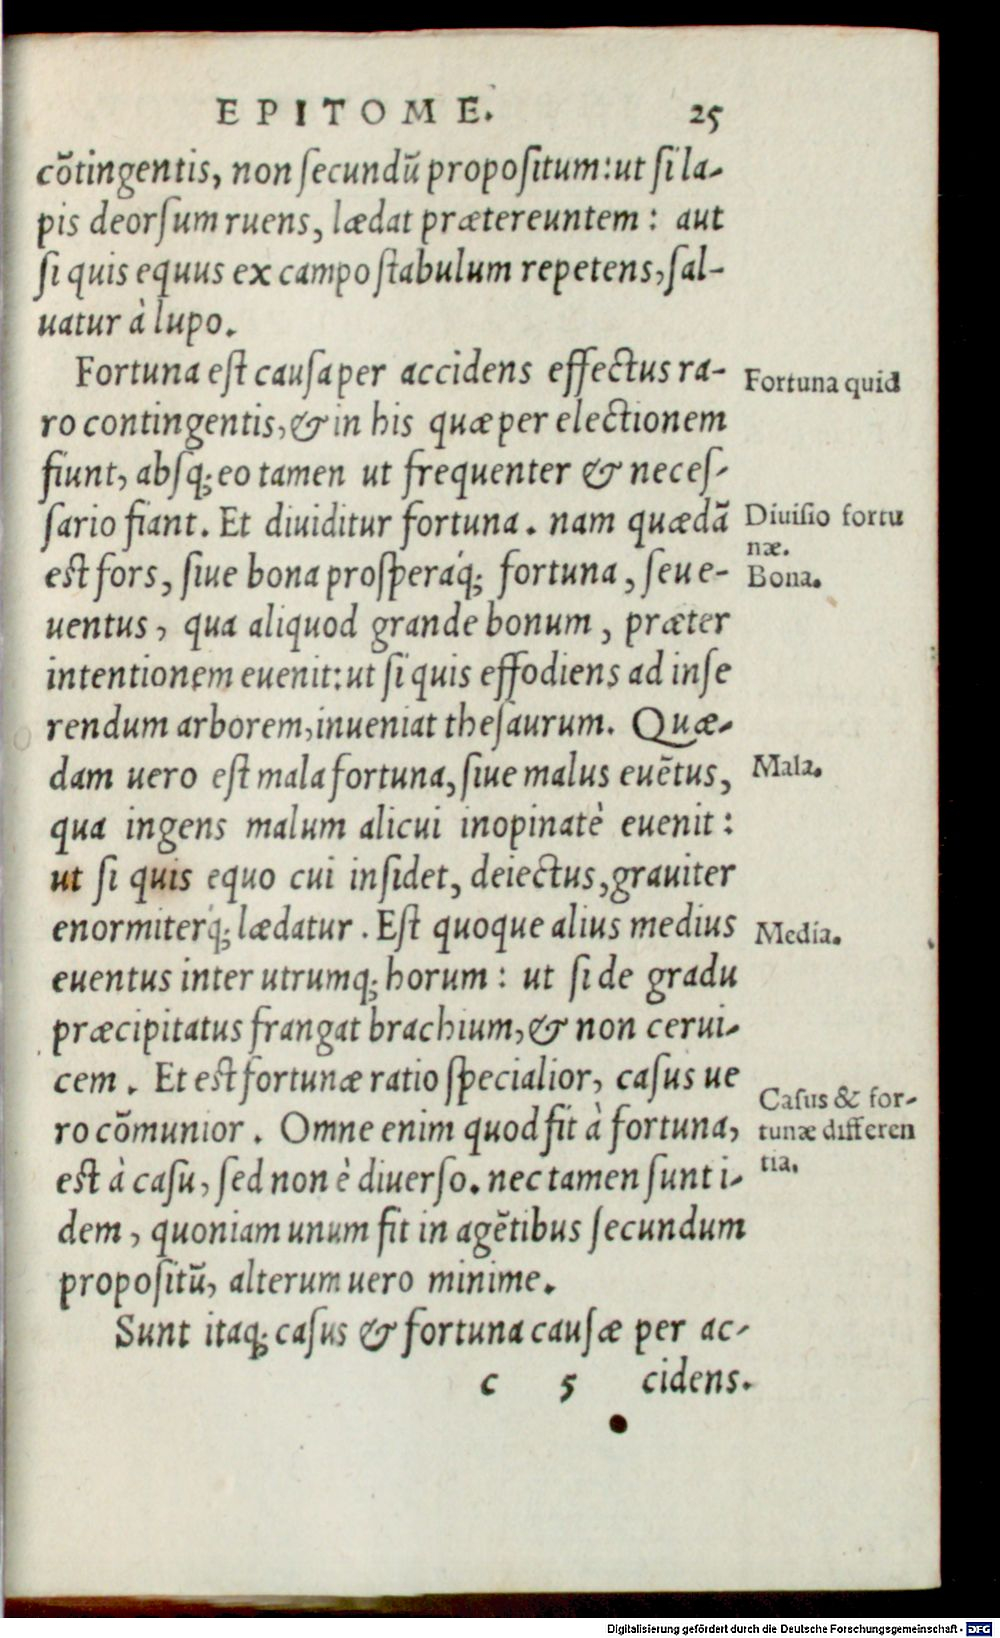 EPITOME. 25
cõtingentis, non ſecundũ propoſitum: ut ſi la-
pis deorſum ruens, lædat prætereuntem: aut
ſi quis equus ex campo ſtabulum repetens, ſal-
uatur à lupo.
Fortuna eſt cauſa per accidens effectus ra-
ro contingentis, & in his quæ per electionem
fiunt, abſq; eo tamen ut frequenter & neceſ-
ſario fiant. Et diuiditur fortuna. nam quædã
eſt fors, ſiue bona proſperáq; fortuna, ſeu e-
uentus, qua aliquod grande bonum, præter
intentionem euenit: ut ſi quis effodiens ad inſe
rendum arborem, inueniat theſaurum. Quæ-
dam uero eſt mala fortuna, ſiue malus euẽtus,
qua ingens malum alicui inopinatè euenit:
ut ſi quis equo cui inſidet, deiectus, grauiter
enormiterq́; lædatur. Eſt quoque alius medius
euentus inter utrumq; horum: ut ſi de gradu
præcipitatus frangat brachium, & non cerui-
cem. Et eſt fortunæ ratio ſpecialior, caſus ue
ro cõmunior. Omne enim quod fit à fortuna,
eſt à caſu, ſed non è diuerſo. nec tamen ſunt i-
dem, quoniam unum fit in agẽtibus ſecundum
propoſitũ, alterum uero minime.
Sunt itaq; caſus & fortuna cauſæ per ac-
c 5 cidens.
Fortuna quid
Diuiſio fortu
næ.
Bona.
Mala.
Media.
Caſus & for-
tunæ differen
tia.
Digitalisierung gefördert durch die Deutsche Forschungsgemeinschaft - DFG